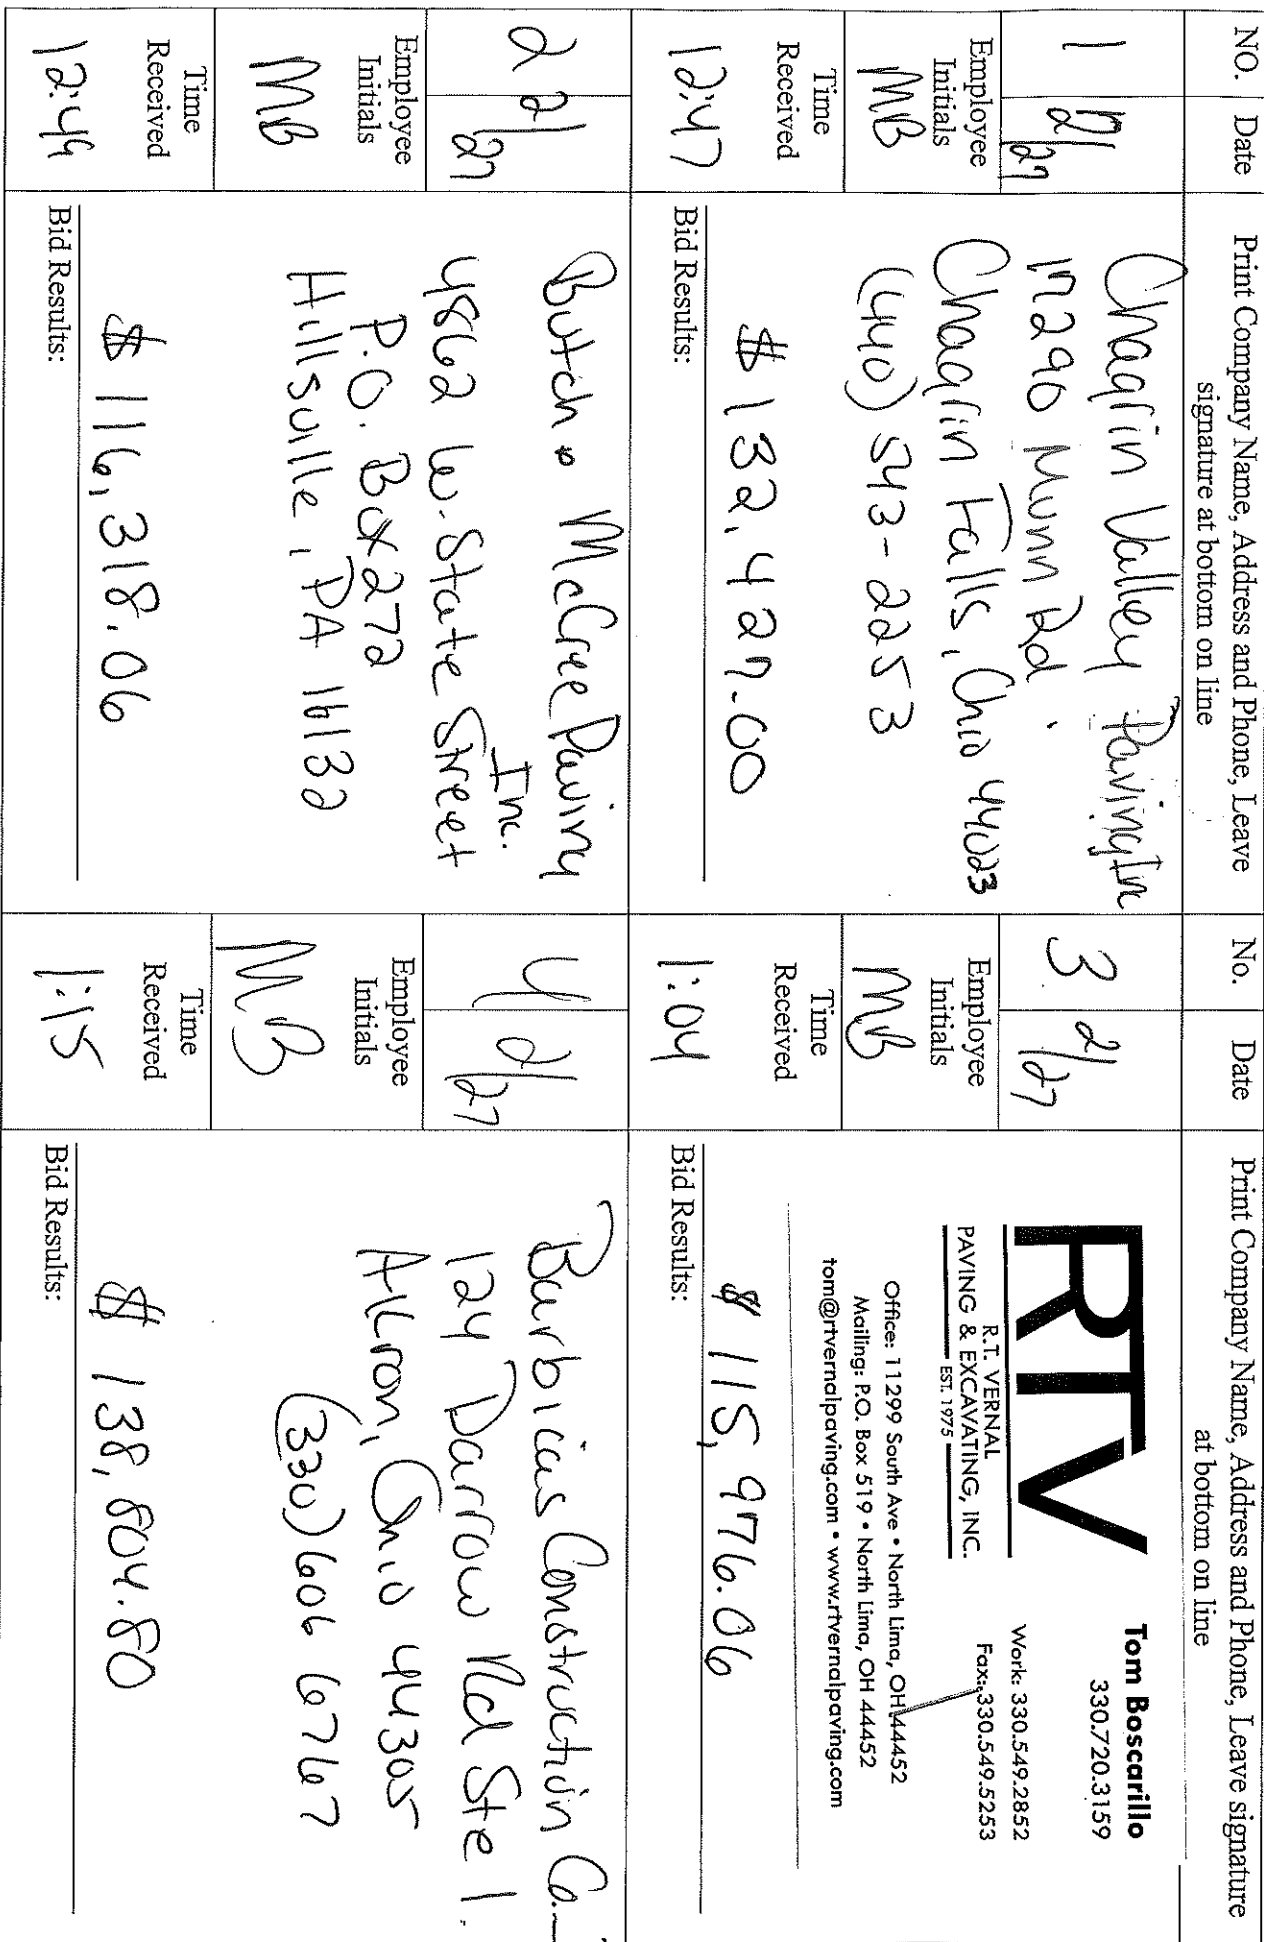 NO.
Date
Print Company Name, Address and Phone, Leave
signature at bottom on line
1
2/27
Employee
Initials
MB
Time
Received
12:47
Chagrin Valley Paving Inc
17290 Munn Rd.
Chagrin Falls, Ohio 44023
(440) 543-2253
$ 132,427.00
Bid Results:
2
2/27
Employee
Initials
MB
Time
Received
12:49
Butch & McCree Paving
Inc.
4862 W. State Street
P.O. Box 272
Hillsville, PA 16132
$ 116,318.06
Bid Results:
No.
Date
Print Company Name, Address and Phone, Leave signature
at bottom on line
3
2/27
Employee
Initials
MB
Time
Received
1:04
RTV
R.T. VERNAL
PAVING & EXCAVATING, INC.
EST. 1975
Tom Boscarillo
330.720.3159
Work: 330.549.2852
Fax: 330.549.5253
Office: 11299 South Ave • North Lima, OH 44452
Mailing: P.O. Box 519 • North Lima, OH 44452
tom@rtvernalpaving.com • www.rtvernalpaving.com
$ 115,976.06
Bid Results:
4
2/27
Employee
Initials
MB
Time
Received
1:15
Barbicas Construction Co.
124 Darrow Rd Ste 1.
Akron, Ohio 44305
(330) 606 6767
$ 138,804.80
Bid Results: